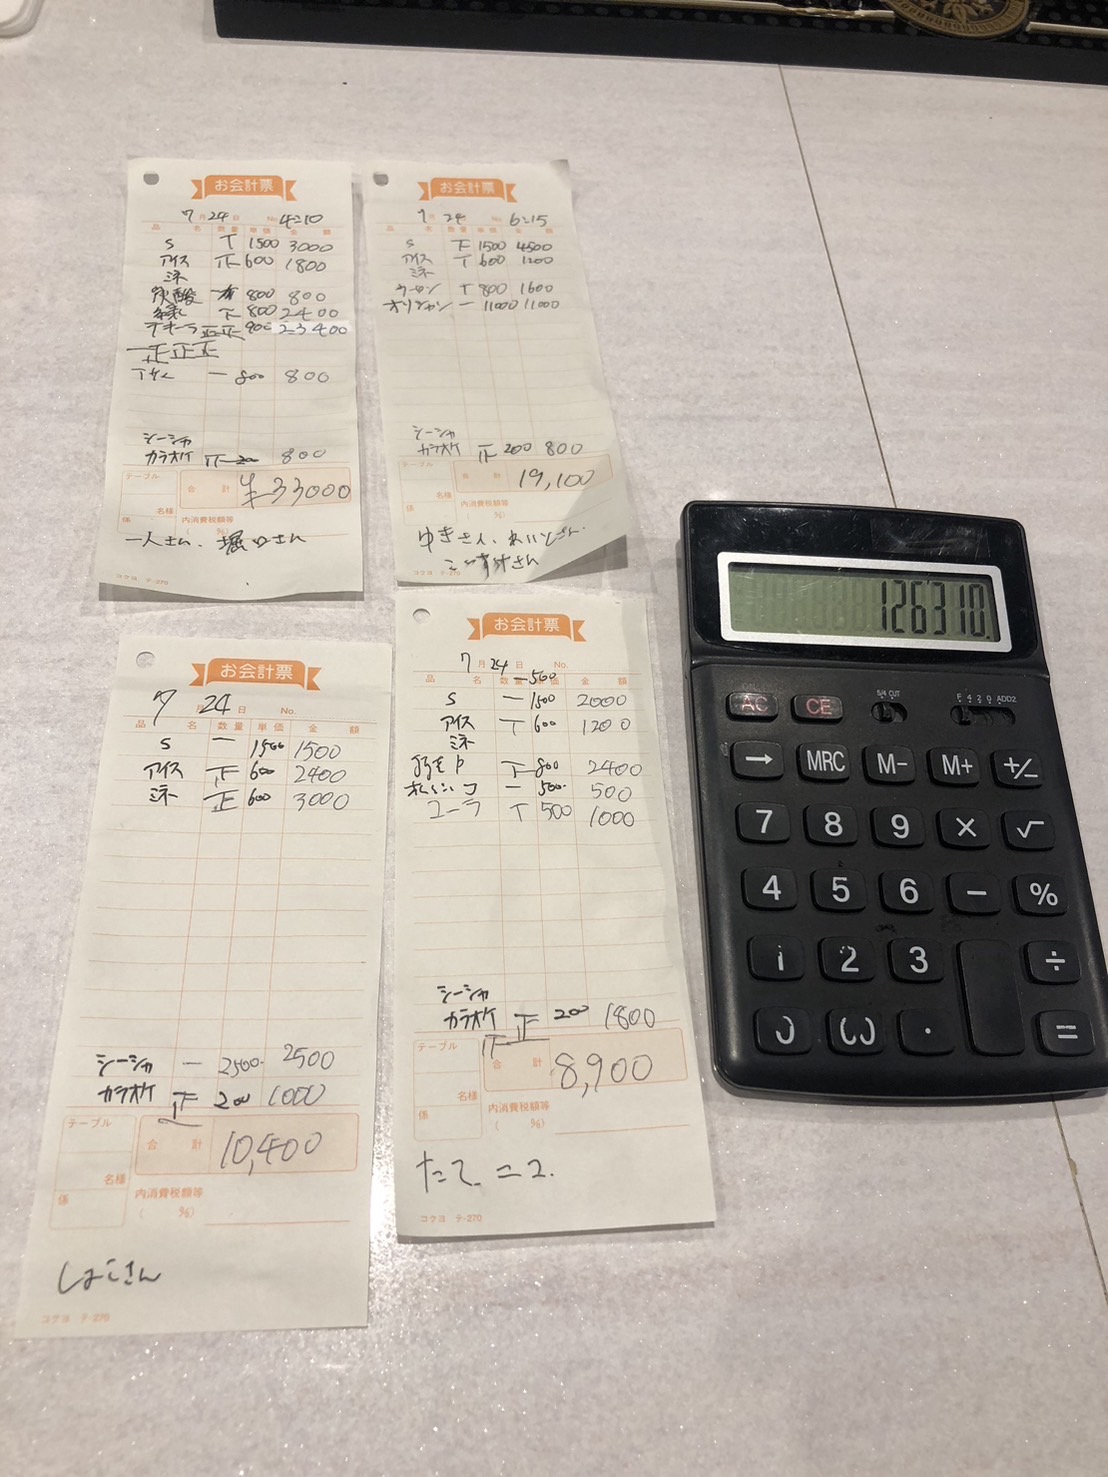 お会計票
7月24日 No. 4:10
品名 数量 単価 金額
S T 1500 3000
アイス 下 600 1800
ミネ
炭酸 一 800 800
緑 下 800 2400
テキーラ 正正 900 23400
一 正正正
一 800 800
シーシャ
カラオケ 正 200 800
テーブル
名様
係
合計 ¥33000
内消費税額等
( %)
一人さん、堀口さん
コクヨ テ-270
お会計票
7月24 No. 6:15
品名 数量 単価 金額
S 下 1500 4500
アイス T 600 1200
ミネ
ウーロン T 800 1600
オリシャン 一 11000 11000
シーシャ
カラオケ 正 200 800
テーブル
名様
係
合計 19,100
内消費税額等
( %)
ゆきさん、れいとさん
お会計票
7月24日 No.
品名 数量 単価 金額
S 一 1500 1500
アイス 正 600 2400
ミネ 正 600 3000
シーシャ 一 2500 2500
カラオケ 正 200 1000
テーブル
名様
係
合計 10,400
内消費税額等
( %)
コクヨ テ-270
お会計票
7月24日 No.
一 500
品名 数量 単価 金額
S 一 1500 2000
アイス T 600 1200
ミネ
下 800 2400
一 500 500
コーラ T 500 1000
シーシャ
カラオケ 正 200 1800
テーブル
名様
係
合計 8,900
内消費税額等
( %)
コクヨ テ-270
126310.
5/4 CUT
F 4 2 0 A ADD2
AC CE
→ MRC M- M+ +/-
7 8 9 × √
4 5 6 − %
1 2 3 ÷
0 00 . =